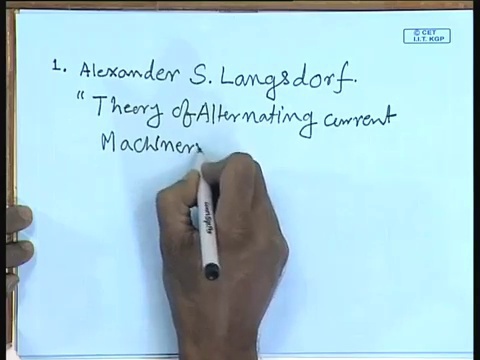 © CET
I.I.T. KGP
1. Alexander S. Langsdorf.
" Theory of Alternating current
Machiner